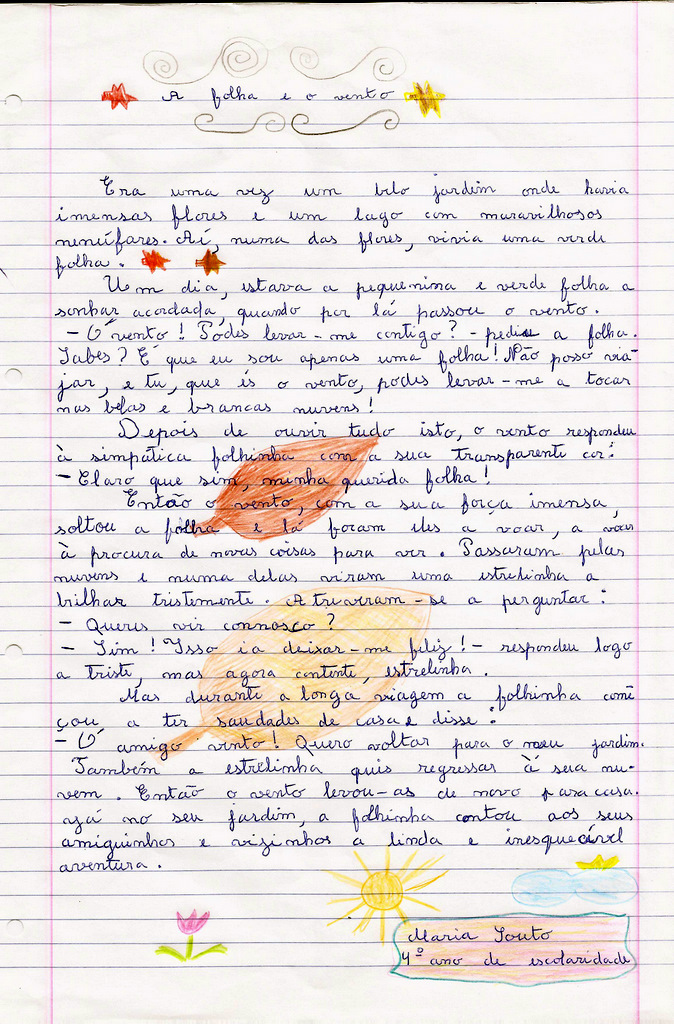 A folha e o vento
Era uma vez um belo jardim onde havia
imensas flores e um lago com maravilhosos
nenúfares. Aí, numa das flores, vivia uma verde
folha.
Um dia, estava a pequenina e verde folha a
sonhar acordada, quando por lá passou o vento.
- Ó vento! Podes levar-me contigo? - pediu a folha.
Sabes? É que eu sou apenas uma folha! Não posso via-
jar, e tu, que és o vento, podes levar-me a tocar
nas belas e brancas nuvens!
Depois de ouvir tudo isto, o vento respondeu
à simpática folhinha com a sua transparente cor:
- Claro que sim, minha querida folha!
Então o vento, com a sua força imensa,
soltou a folha e lá foram eles a voar, a voar
à procura de novas coisas para ver. Passaram pelas
nuvens e numa delas viram uma estrelinha a
brilhar tristemente. Atreveram-se a perguntar:
- Queres vir connosco?
- Sim! Isso ia deixar-me feliz! - respondeu logo
a triste, mas agora contente, estrelinha.
Mas durante a longa viagem a folhinha come
çou a ter saudades de casa e disse:
- Ó amigo vento! Quero voltar para o meu jardim.
Também a estrelinha quis regressar à sua nu-
vem. Então o vento levou-as de novo para casa.
Já no seu jardim, a folhinha contou aos seus
amiguinhos e vizinhos a linda e inesquecível
aventura.
Maria Souto
4º ano de escolaridade